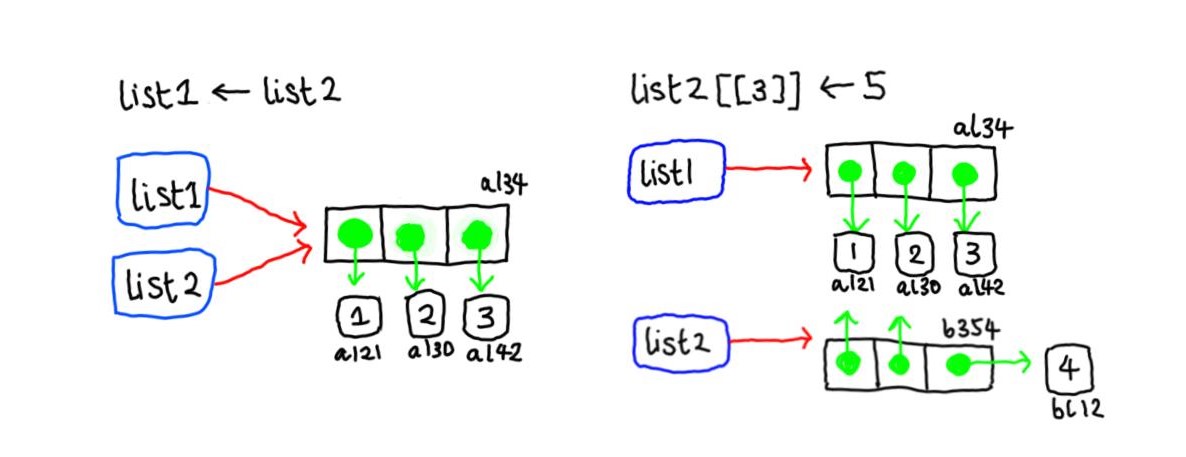 list1 ← list2
list1
list2
a134
1 2 3
a121 a130 a142
list2[[3]] ← 5
list1
a134
1 2 3
a121 a130 a142
list2
b354
4
b612